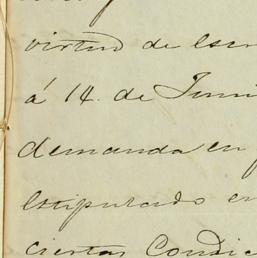 virtud de
á 14. de Juni
demanda en
estipulado en
ciertas Condic